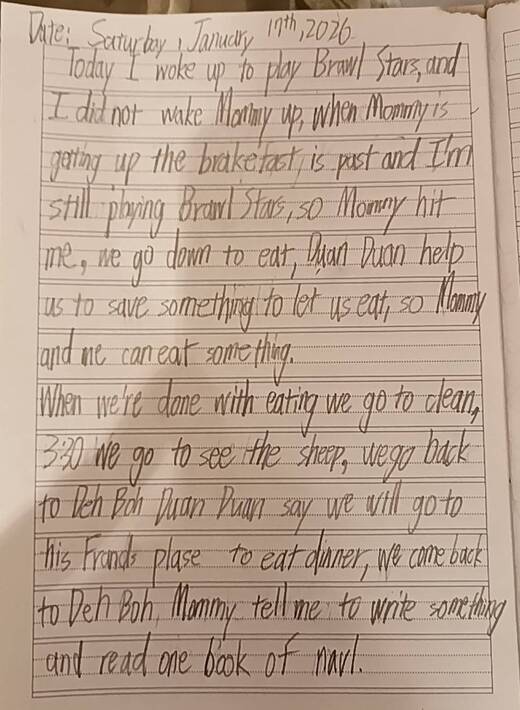 Date: Saturbay, January 17th, 2026
Today I woke up to play Brawl Stars, and
I did not wake Mommy up, when Mommy is
getting up the brakefast, is past and I'm
still playing Brawl Stars, so Mommy hit
me, we go down to eat, Duan Duan help
us to save something to let us eat, so Mommy
and me can eat something.
When we're done with eating we go to clean,
3:30 we go to see the sheep, we go back
to Deh Boh Duan Duan say we will go to
his Fronds plase to eat dinner, we come back
to Deh Boh, Mommy tell me to write something
and read one book of navl.